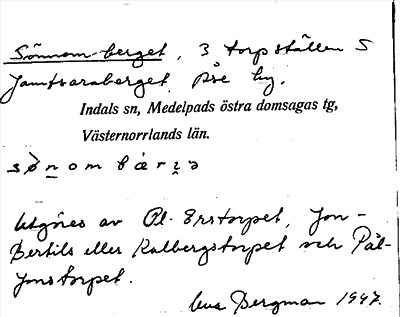 Sönnom-berget, 3 torpställen S
Jamtsaraberget, Åse by.
Indals sn, Medelpads östra domsagas tg,
Västernorrlands län.
Utgöres av Ol-Erstorpet, Jon-
Bertils eller Kalbergstorpet och Pål-
Jonstorpet.
Bergman 1947.